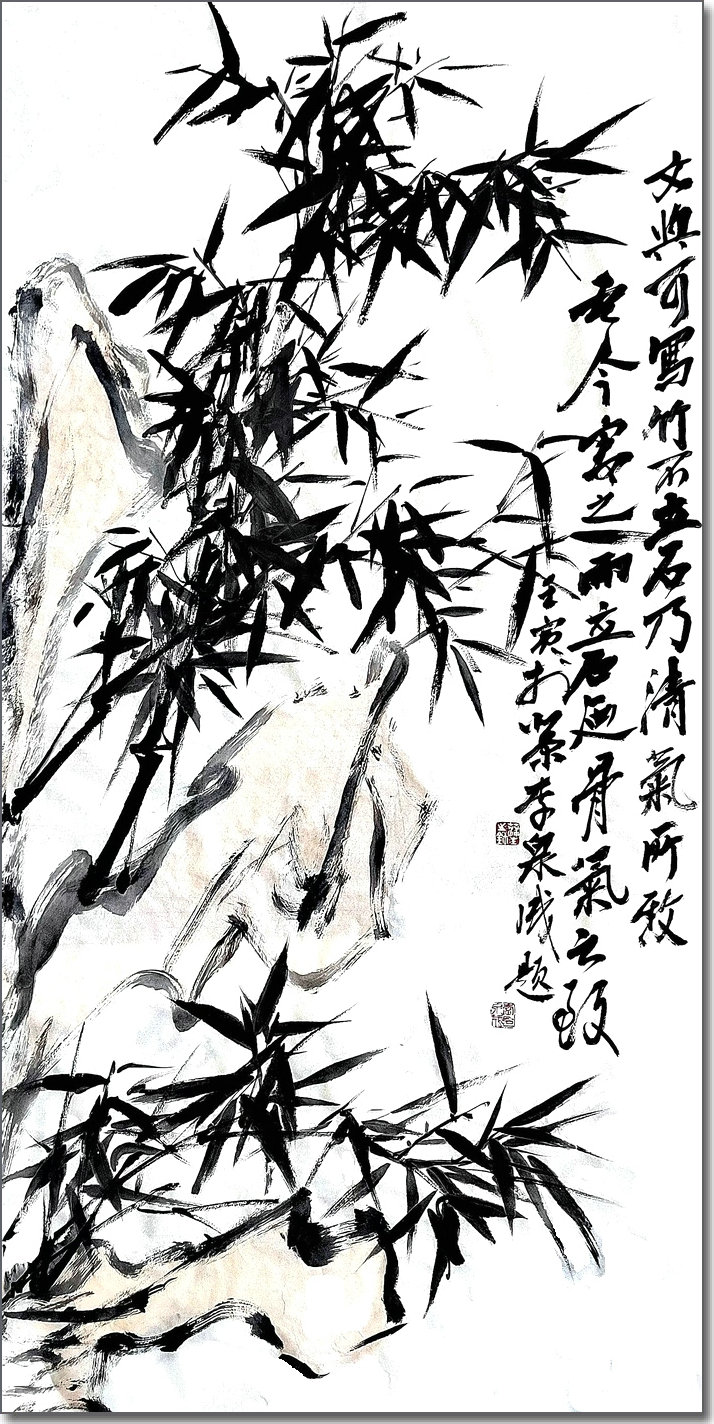 文與可寫竹不立石乃清氣所致
吾今寫之而立石處骨氣之致
壬寅於榮李泉成題